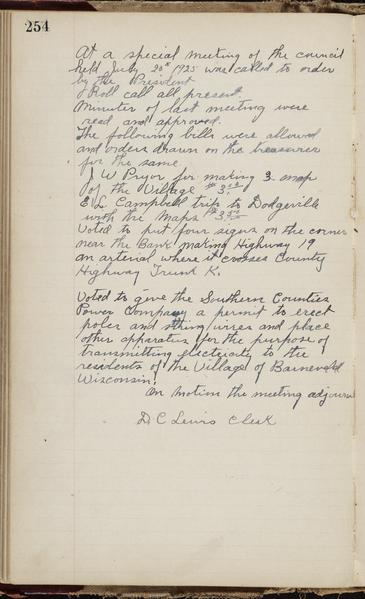 254
At a special meeting of the council
held July 20th 1925 was called to order
by the President
Roll call all present
Minutes of last meeting were
read and approved.
The following bills were allowed
and orders drawn on the treasurer
for the same
J W Pryor for making 3 map
of the Village $3
E L Campbell trip to Dodgeville
with the Maps $3
Voted to put four signs on the corner
near the Bank making Highway 19
an arterial where it crosses County
Highway Trunk K.
Voted to give the Southern Counties
Power Company a permit to erect
poles and string wires and place
other apparatus for the purpose of
transmitting electricity to the
residents of the Village of Barneveld
Wisconsin.
On motion the meeting adjourn
D C Lewis Clerk